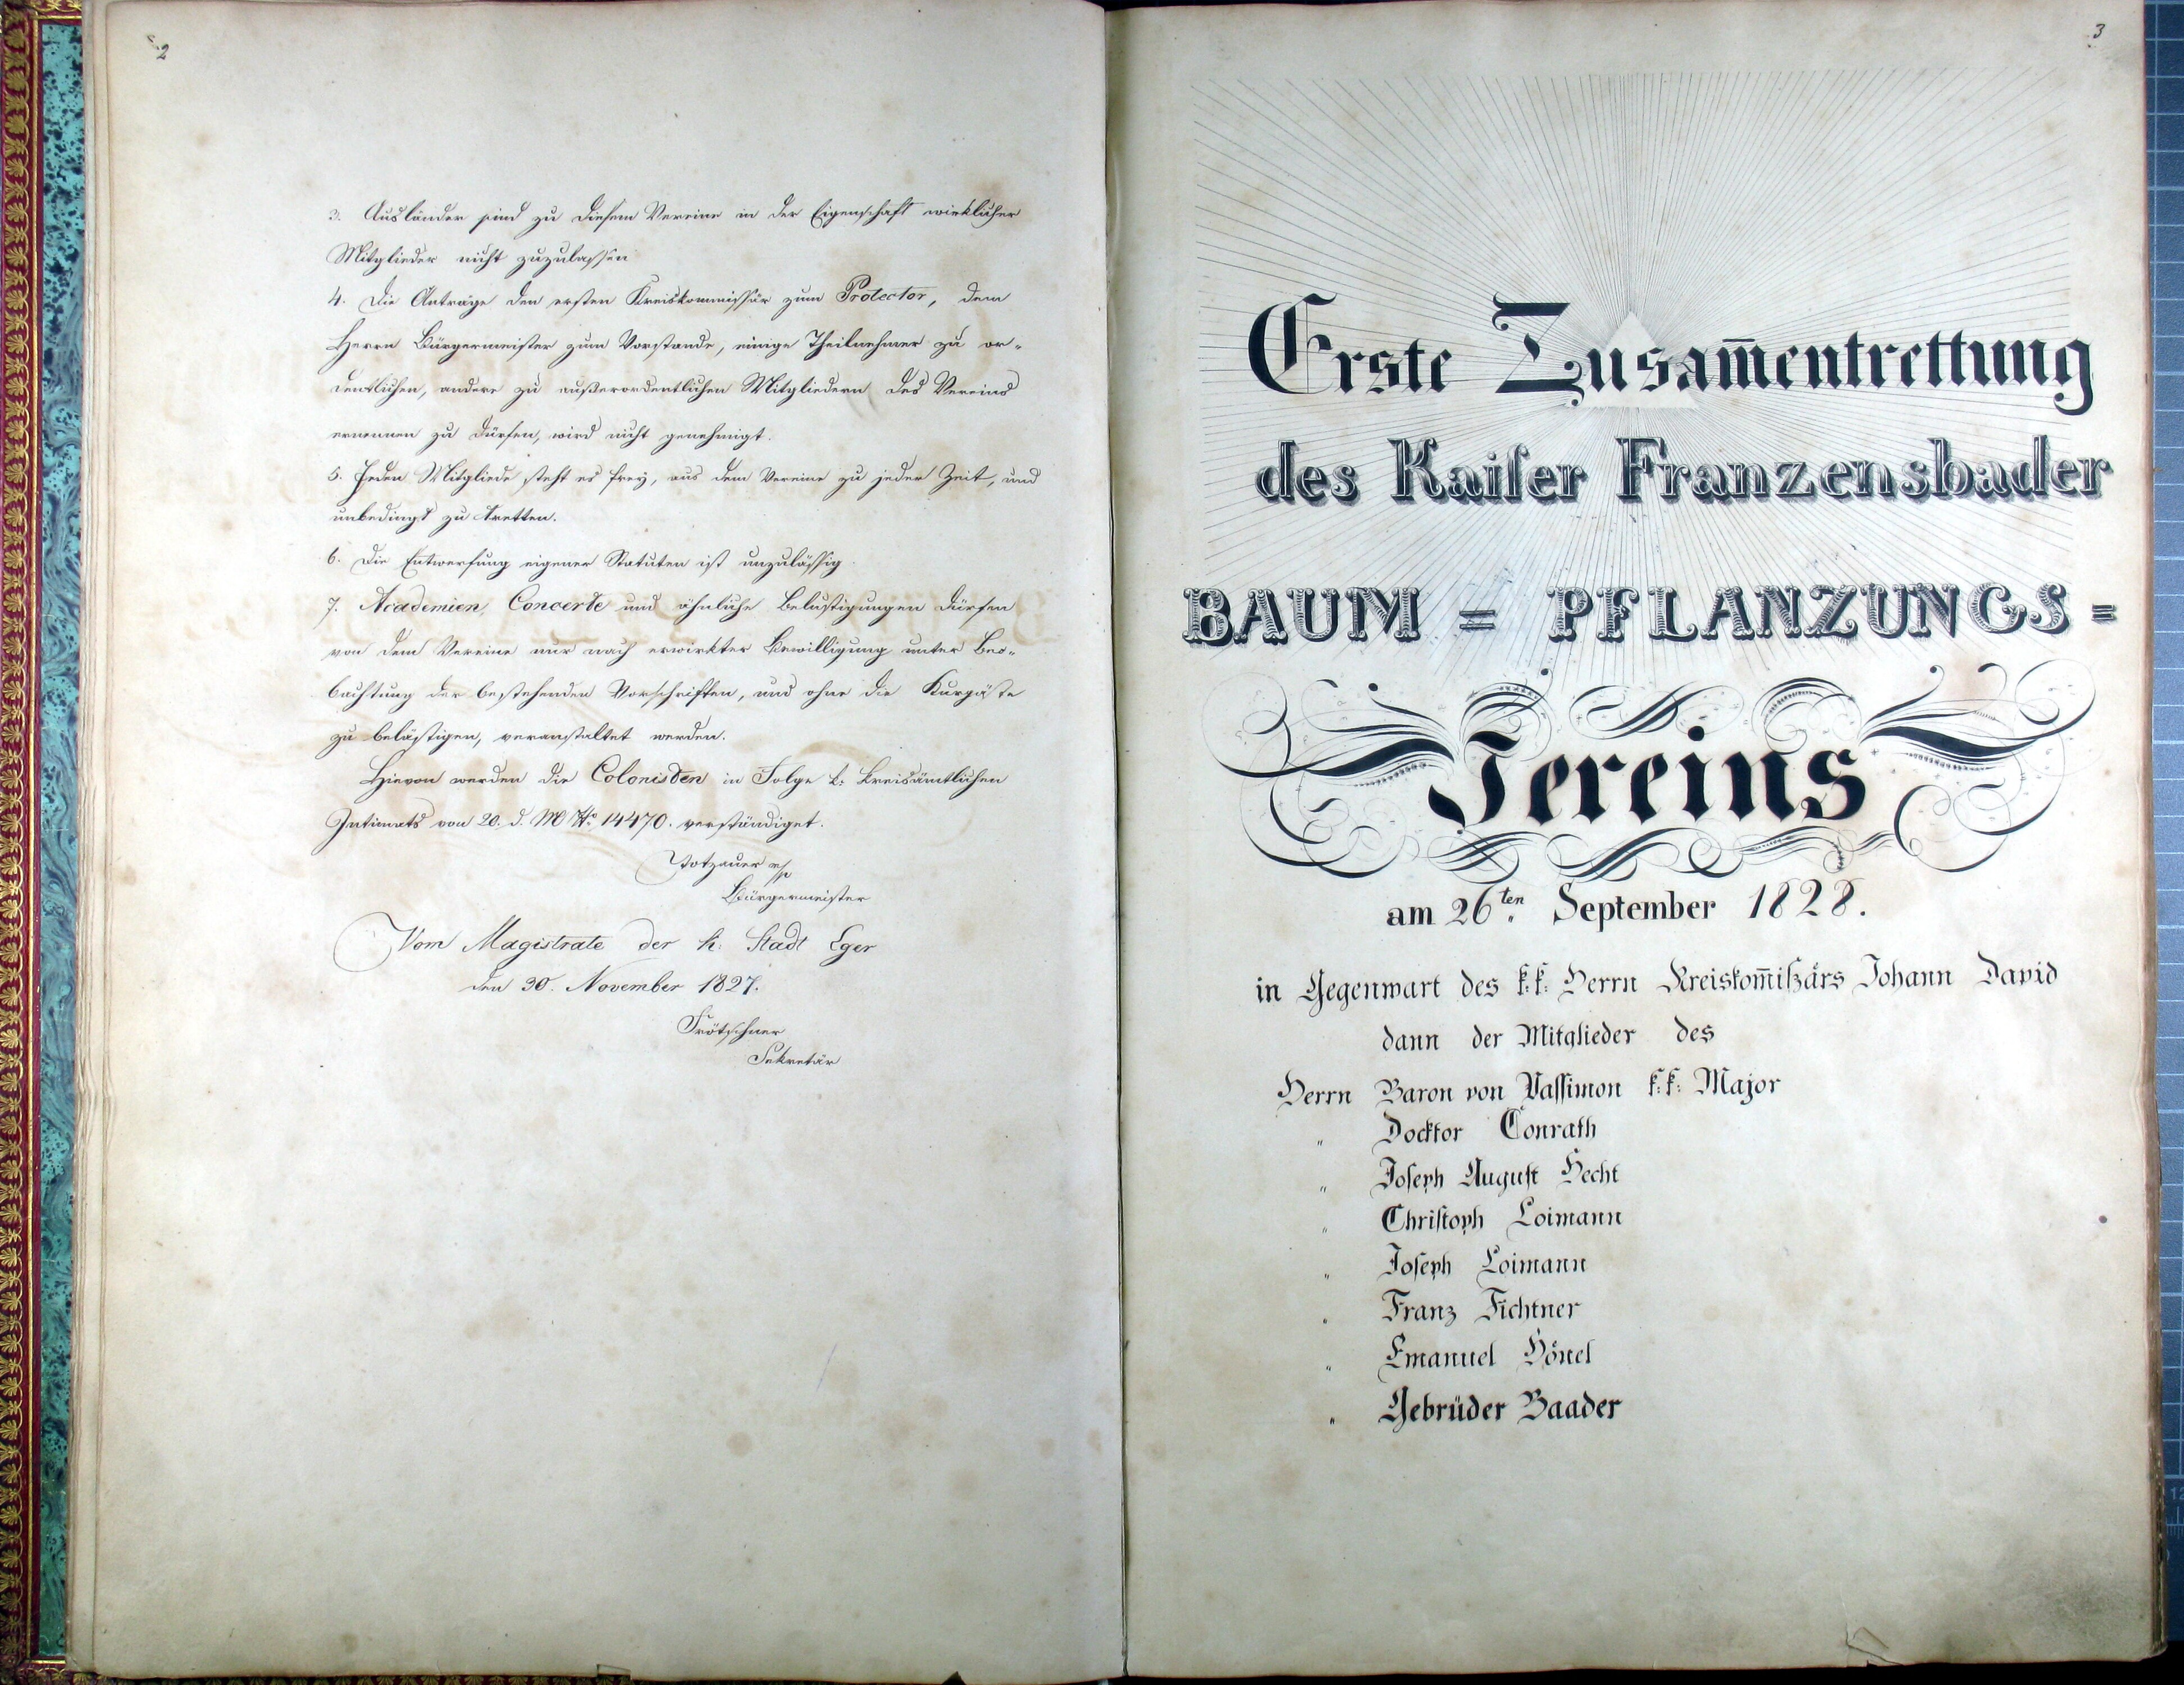 2
3. Ausländer sind zu diesem Vereine in der Eigenschaft wirklicher
Mitglieder nicht zuzulassen
4. Die Anträge den ersten Kreiskommissär zum Protector, dem
Herrn Bürgermeister zum Vorstande, einige Theilnehmer zu or-
dentlichen, andere zu außerordentlichen Mitgliedern des Vereins
ernennen zu dürfen, wird nicht genehmigt.
5. Jeden Mitgliede steht es frey, aus dem Vereine zu jeder Zeit, und
unbedingt zu tretten.
6. Die Entwerfung eigener Statuten ist unzulässig
7. Academien, Concerte und ähnliche Belustigungen dürfen
von dem Vereine nur nach erwirkter Bewilligung unter Beo-
bachtung der bestehenden Vorschriften, und ohne die Kurgäste
zu belästigen, veranstaltet werden.
Hievon werden die Colonisten in Folge k: Kreisämtlichen
Intimats von 20. d. M No 14470. verständiget.
Totzauer
Bürgermeister
Vom Magistrate der k: Stadt Eger
den 30. November 1827.
Trötscher
Sekretär
3
Erste Zusam̄entrettung
des Kaiſer Franzensbader
BAUM = PFLANZUNGS =
Vereins
am 26ten September 1828.
in Gegenwart des k:k: Herrn Kreiskom̄ißärs Johann David
dann der Mitglieder des
Herrn Baron von Vaſſimon k:k: Major
„ Docktor Conrath
„ Joſeph Auguſt Hecht
„ Chriſtoph Loimann
„ Joſeph Loimann
„ Franz Fichtner
„ Emanuel Hönel
„ Gebrüder Baader
12